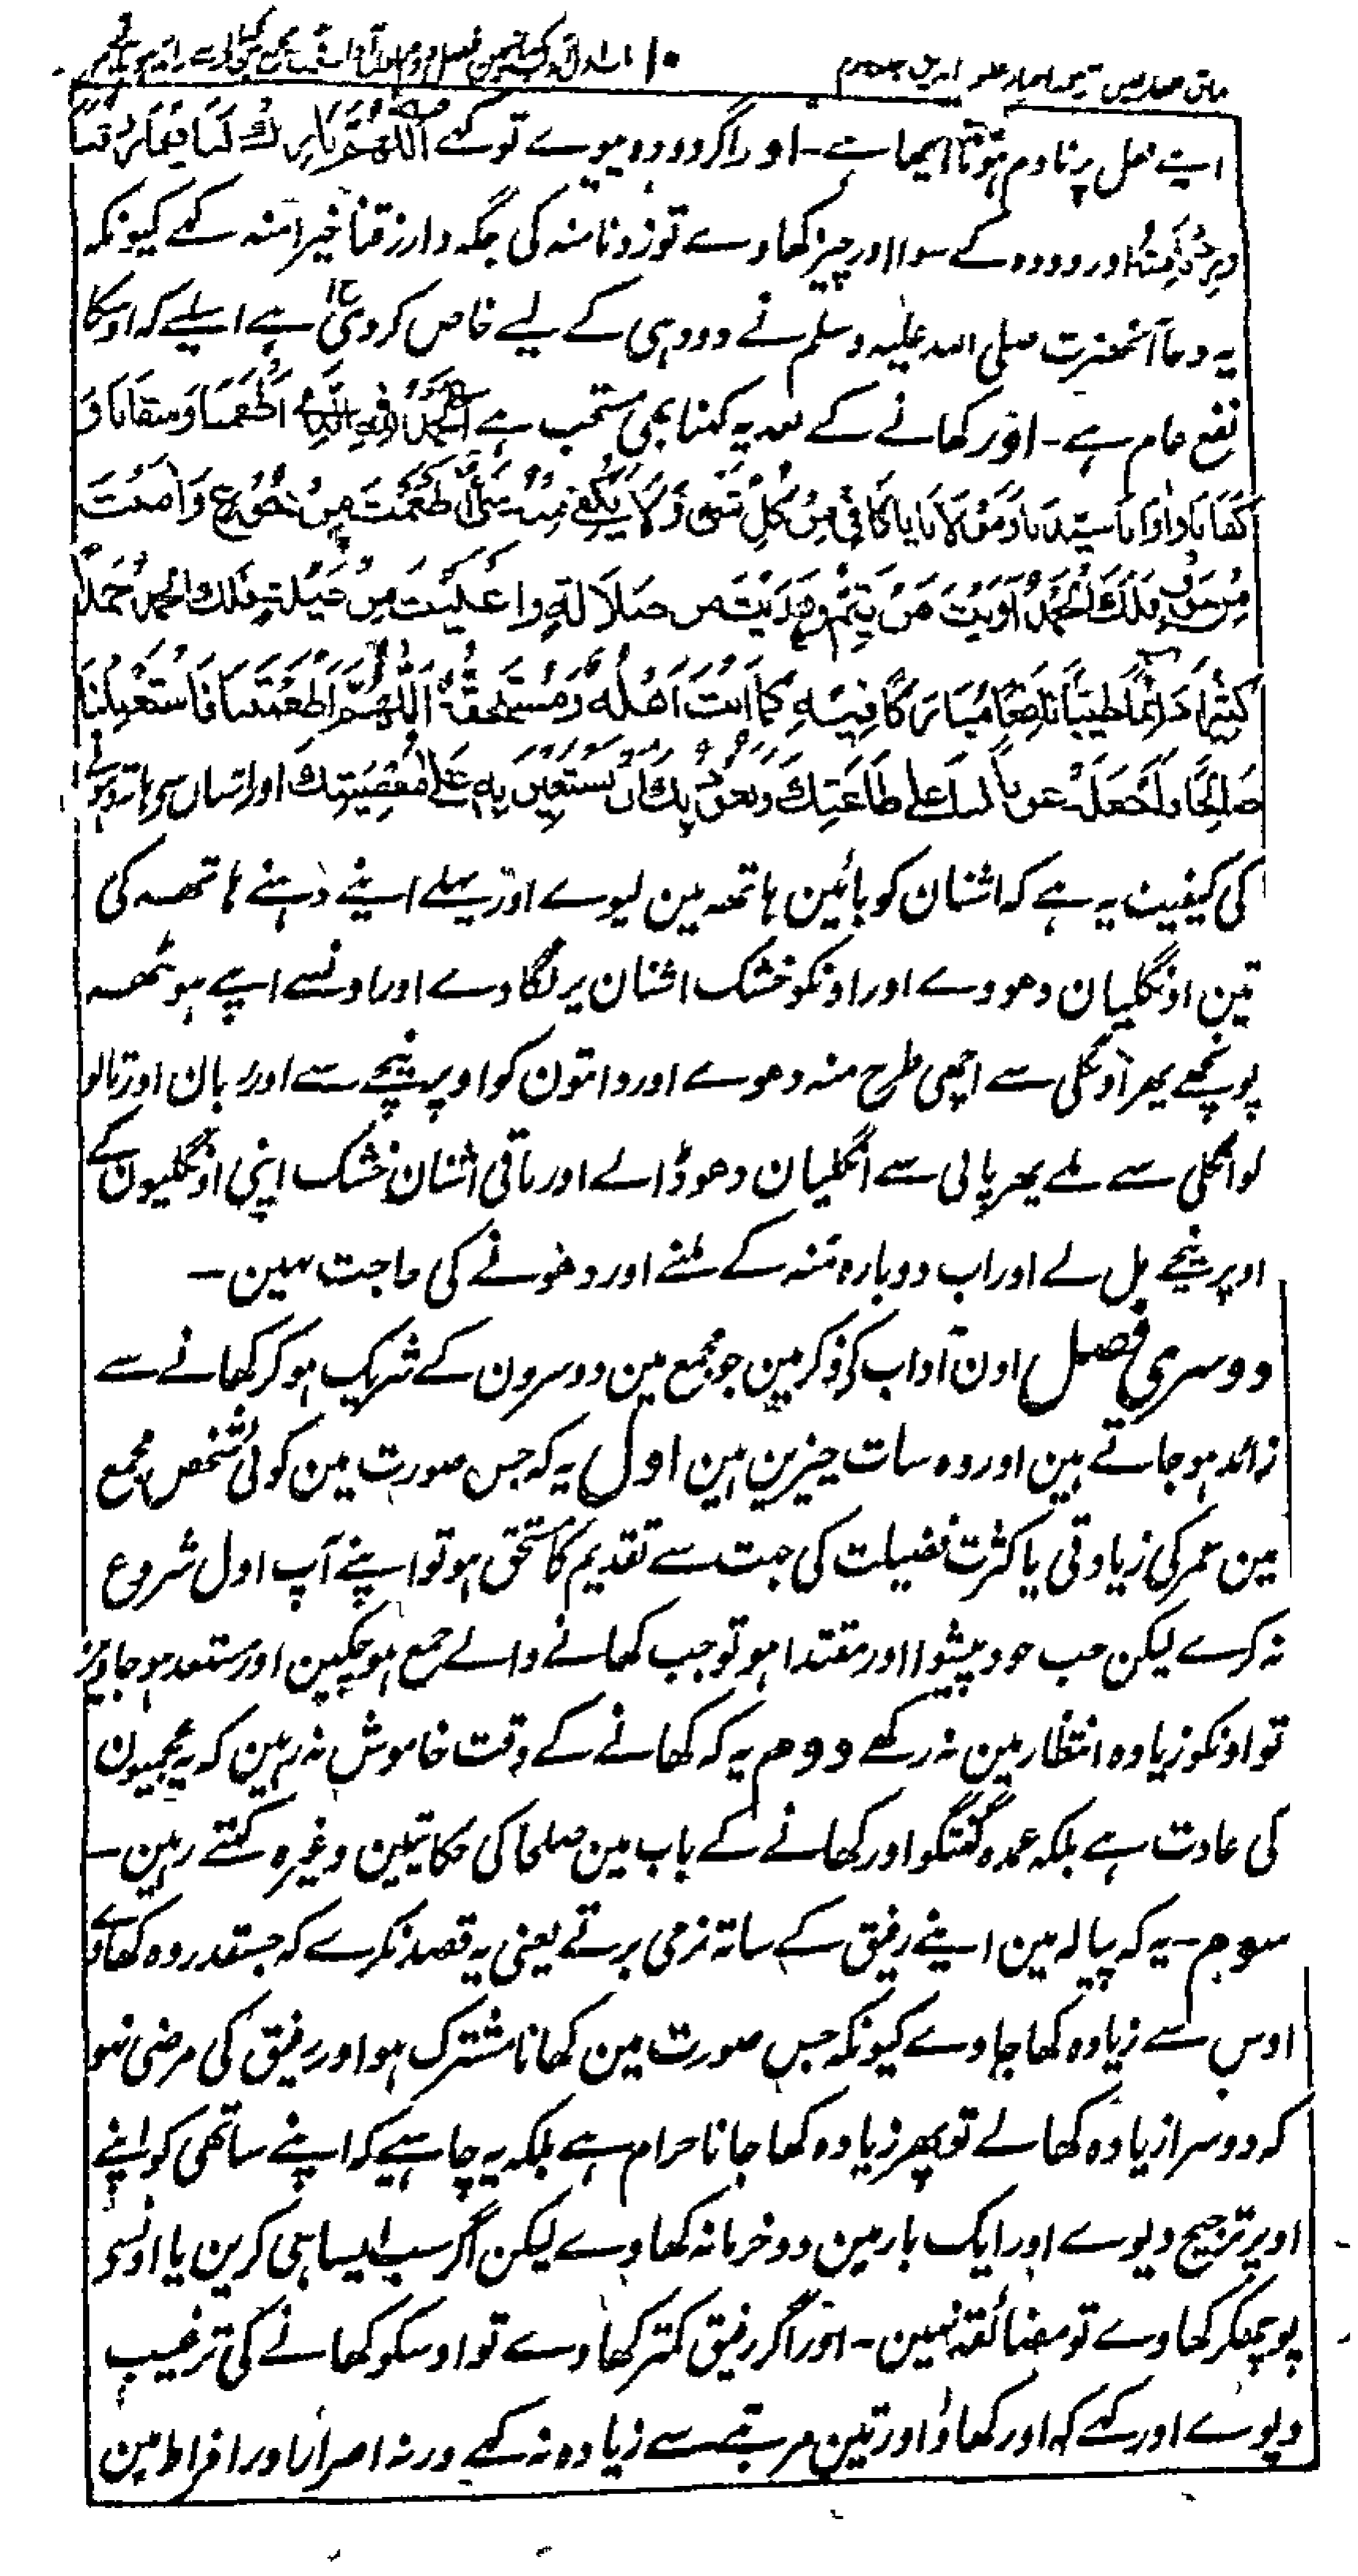 ۱۰
اپنے فعل پر نادم ہونا اچھا ہے۔ اور اگر دودہ پیوے تو کہے اَللّٰهُمَّ بَارِكْ لَنَا فِيْمَا رَزَقْتَنَا
وَزِدْنَا مِنْهُ اور دودہ کے سوا اور چیز کھاوے تو زدنا منہ کی جگہ وارزقنا خیرا منہ کہے کیونکہ
یہ دعا آنحضرت صلی اللہ علیہ وسلم نے دودہ ہی کے لیے خاص کر دی ہے اسلیے کہ اوسکا
نفع عام ہے۔ اور کھانے کے بعد یہ کہنا بھی مستحب ہے اَلْحَمْدُ لِلّٰهِ الَّذِيْ اَطْعَمَنَا وَسَقَانَا وَ
كَفَانَا وَاٰوَانَا سَيِّدَنَا وَمَوْلَانَا يَا كَافِيْ مِنْ كُلِّ شَيْءٍ وَّلَا يَكْفِيْ مِنْهُ شَيْءٌ اَطْعَمْتَ مِنْ جُوْعٍ وَاٰمَنْتَ
مِنْ خَوْفٍ فَلَكَ الْحَمْدُ اٰوَيْتَ مِنْ يُتْمٍ وَهَدَيْتَ مِنْ ضَلَالَةٍ وَاَغْنَيْتَ مِنْ عَيْلَةٍ فَلَكَ الْحَمْدُ حَمْدًا
كَثِيْرًا دَائِمًا طَيِّبًا نَافِعًا مُبَارَكًا فِيْهِ كَمَا اَنْتَ اَهْلُهٗ وَمُسْتَحِقُّهٗ اَللّٰهُمَّ اَطْعَمْتَنَا طَيِّبًا فَاسْتَعْمِلْنَا
صَالِحًا وَاجْعَلْهُ عَوْنًا لَنَا عَلٰى طَاعَتِكَ وَنَعُوْذُ بِكَ اَنْ نَسْتَعِيْنَ بِهٖ عَلٰى مَعْصِيَتِكَ اور اشنان سے ہاتہ دھونے
کی کیفیت یہ ہے کہ اشنان کو بائین ہاتھہ مین لیوے اور پہلے اپنے دہنے ہاتھہ کی
تین اونگلیان دھووے اور اونکو خشک اشنان پر لگا دے اور اونسے اپنے ہونٹھہ
پونچھے پھر اونگلی سے اچھی طرح منہ دھوے اور دانتون کو اوپر نیچے سے اور زبان اور تالو
کو انگلی سے ملے پھر پانی سے انگلیان دھو ڈالے اور باقی اشنان خشک اپنی اونگلیون کے
اوپر نیچے مل لے اور اب دوبارہ منہ کے ملنے اور دھونے کی حاجت نہین۔
دوسری فصل اون آداب کی ذکر مین جو مجمع مین دوسرون کے شریک ہو کر کھانے سے
زائد ہو جاتے ہین اور وہ سات چیزین ہین اول یہ کہ جس صورت مین کوئی شخص مجمع
مین عمر کی زیادتی یا کثرت فضیلت کی جہت سے تقدیم کا مستحق ہو تو اپنے آپ اول شروع
نہ کرے لیکن جب خود پیشوا اور مقتدا ہو تو جب کھانے والے جمع ہو چکین اور مستعد ہو جاوین
تو اونکو زیادہ انتظار مین نہ رکھے دوم یہ کہ کھانے کے وقت خاموش نہ رہین کہ یہ عجمیون
کی عادت ہے بلکہ عمدہ گفتگو اور کھانے کے باب مین صلحا کی حکایتین وغیرہ کہتے رہین۔
سوم۔ یہ کہ پیالہ مین اپنے رفیق کے ساتہ نرمی برتے یعنی یہ قصد نکرے کہ جسقدر وہ کھاوے
اوس سے زیادہ کھا جاوے کیونکہ جس صورت مین کھانا مشترک ہو اور رفیق کی مرضی نہو
کہ دوسرا زیادہ کھالے تو پھر زیادہ کھا جانا حرام ہے بلکہ یہ چاہیے کہ اپنے ساتھی کو اپنے
اوپر ترجیح دیوے اور ایک بار مین دو خرما نہ کھاوے لیکن اگر سب ایسا ہی کرین یا اونسے
پوچھکر کھاوے تو مضائقہ نہین۔ اور اگر رفیق کمتر کھاوے تو اوسکو کھانے کی ترغیب
دیوے اور کہے کہ اور کھاؤ اور تین مرتبے سے زیادہ نہ کہے ورنہ اصرار اور افراط مین